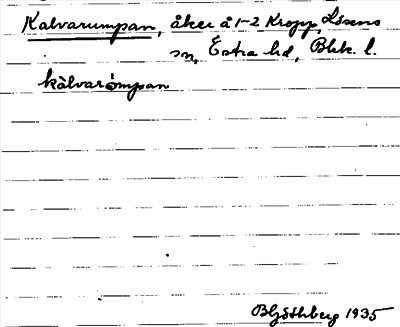 Kalvarumpan, åker å 1-2 Kropp, Lösens
sn, Östra hd, Blek. l.
kálvarómpan
B Göthberg 1935